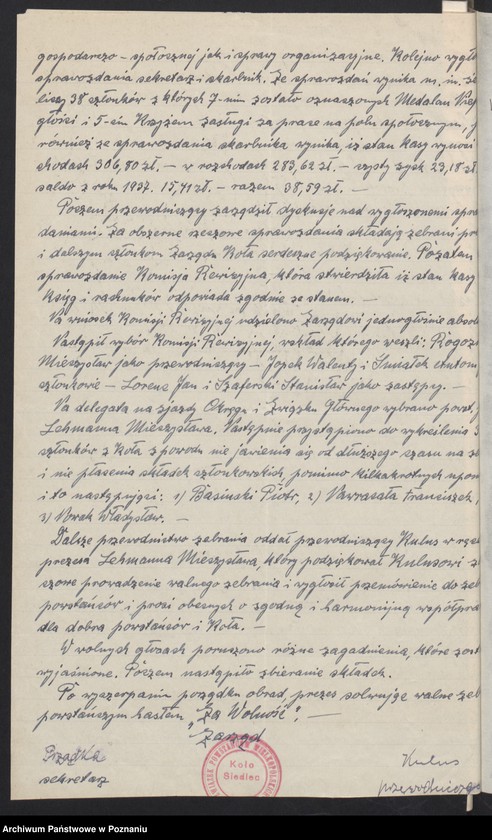 gospodarczo – społecznej jak i sprawy organizacyjne. Kolejno wygło
sprawozdania sekretarz i skarbnik. Ze sprawozdań wynika m. in. że
liczy 38 członków z których 7-miu zostało oznaczonych Medalem Niep
głości i 5-ciu Krzyżem zasługi za pracę na polu społecznym,
również ze sprawozdania skarbnika wynika, iż stan kasy wynosi
chodach 306,80 zł. – w rozchodach 283,62 zł. – czysty zysk 23,18 zł
saldo z roku 1937. 15,41 zł. – razem 38,59 zł. –
Poczem przewodniczący zarządził dyskusję nad wygłoszonemi spra
daniami. Za obszerne rzeczowe sprawozdania składają zebrani pr
i dalszym członkom Zarządu Koła serdeczne podziękowanie. Pozatem
sprawozdanie Komisja Rewizyjna, która stwierdziła iż stan kasy
ksiąg i rachunków odpowiada zgodnie ze stanem. –
Na wniosek Komisji Rewizyjnej udzielono Zarządowi jednogłośnie absolu
Nastąpił wybór Komisji Rewizyjnej, wskład którego weszli: Rogoz
Mieczysław jako przewodniczący – Jopek Walenty i Śmiałek Anton
członkowie – Lorenz Jan i Szaferski Stanisław jako zastępcy. –
Na delegata na zjazdy Okręgu i Związku Głównego wybrano powst.
Lehmanna Mieczysława. Następnie przystąpiono do wykreślenia 3
członków z Koła z powodu nie jawienia się od dłuższego czasu na ze
i nie płacenia składek członkowskich, pomimo kilkakrotnych upom
i to następujący: 1) Basinski Piotr, 2) Nawrasała Franciszek,
3) Nowak Władysław. –
Dalsze przewodnictwo zebrania oddał przewodniczący Kulus w ręce
prezesa Lehmanna Mieczysława, który podziękował Kulusowi z
czowe prowadzenie walnego zebrania i wygłosił przemówienie do zeb
powstańców i prosi obecnych o zgodną i harmonijną współpra
dla dobra powstańców i Koła. –
W wolnych głosach poruszono różne zagadnienia, które zost
wyjaśnione. Poczem nastąpiło zbieranie składek.
Po wyczerpaniu porządku obrad, prezes solwuje walne zeb
powstańczym hasłem „Za Wolność”. –
Zarząd
Koło
Siedlec
sekretarz
Kulus
przewodniczący
Archiwum Państwowe w Poznaniu